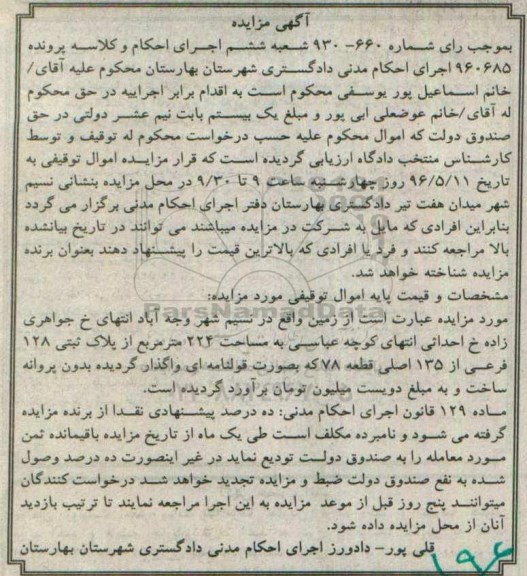 آگهی مزایده
بموجب رای شماره ۶۶۰- ۹۳۰ شعبه ششم اجرای احکام و کلاسه پرونده
۹۶۰۶۸۵ اجرای احکام مدنی دادگستری شهرستان بهارستان محکوم علیه آقای/
خانم اسماعیل پور یوسفی محکوم است به اقدام برابر اجراییه در حق محکوم
له آقای/خانم عوضعلی ابی پور و مبلغ یک بیستم بابت نیم عشر دولتی در حق
صندوق دولت که اموال محکوم علیه حسب درخواست محکوم له توقیف و توسط
کارشناس منتخب دادگاه ارزیابی گردیده است که قرار مزایده اموال توقیفی به
تاریخ ۹۶/۵/۱۱ روز چهارشنبه ساعت ۹ تا ۹/۳۰ در محل مزایده بنشانی نسیم
شهر میدان هفت تیر دادگستری بهارستان دفتر اجرای احکام مدنی برگزار می گردد
بنابراین افرادی که مایل به شرکت در مزایده میباشند می توانند در تاریخ بیانشده
بالا مراجعه کنند و فرد یا افرادی که بالاترین قیمت را پیشنهاد دهند بعنوان برنده
مزایده شناخته خواهد شد.
مشخصات و قیمت پایه اموال توقیفی مورد مزایده:
مورد مزایده عبارت است از زمین واقع در نسیم شهر وجه آباد انتهای خ جواهری
زاده خ احداثی انتهای کوچه عباسی به مساحت ۲۲۴ مترمربع از پلاک ثبتی ۱۲۸
فرعی از ۱۳۵ اصلی قطعه ۷۸ که بصورت قولنامه ای واگذار گردیده بدون پروانه
ساخت و به مبلغ دویست میلیون تومان برآورد گردیده است.
ماده ۱۲۹ قانون اجرای احکام مدنی: ده درصد پیشنهادی نقدا از برنده مزایده
گرفته می شود و نامبرده مکلف است طی یک ماه از تاریخ مزایده باقیمانده ثمن
مورد معامله را به صندوق دولت تودیع نماید در غیر اینصورت ده درصد وصول
شده به نفع صندوق دولت ضبط و مزایده تجدید خواهد شد درخواست کنندگان
میتوانند پنج روز قبل از موعد مزایده به این اجرا مراجعه نمایند تا ترتیب بازدید
آنان از محل مزایده داده شود.
قلی پور- دادورز اجرای احکام مدنی دادگستری شهرستان بهارستان
ParsNamadData